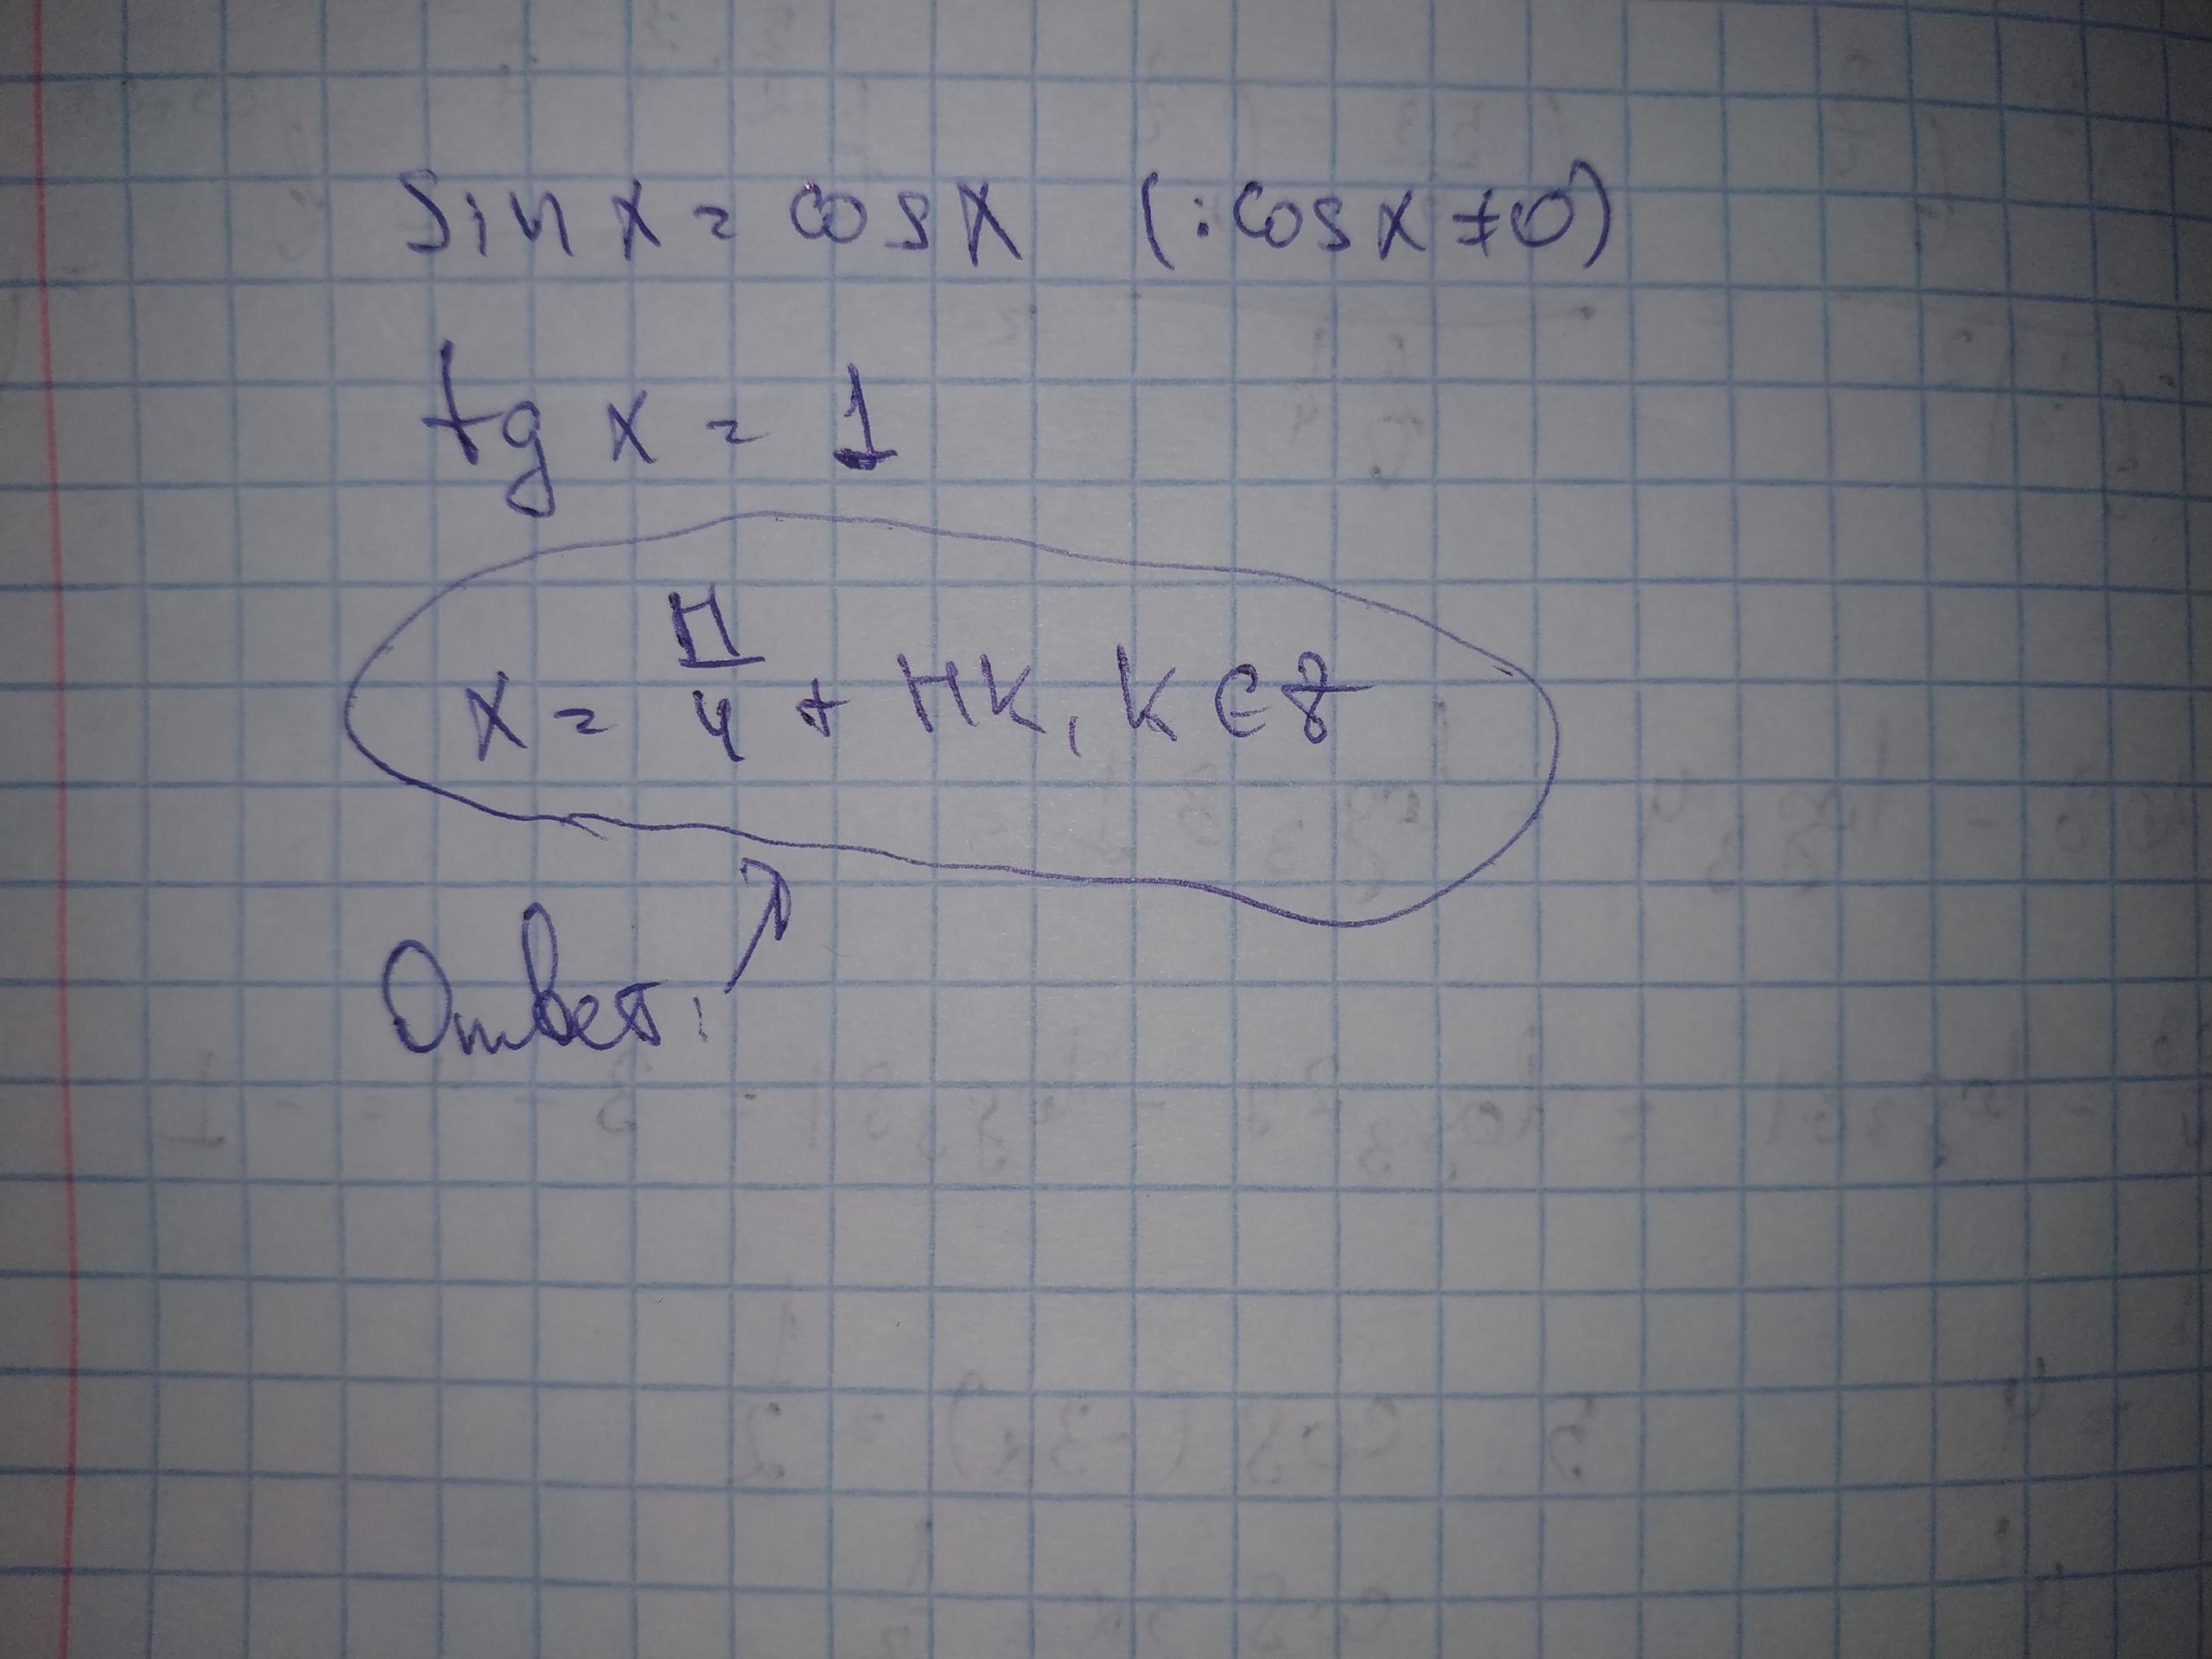 sin x = cos x (: cos x ≠ 0)
tg x = 1
x = π/4 + πk, k ∈ Z
Ответ: